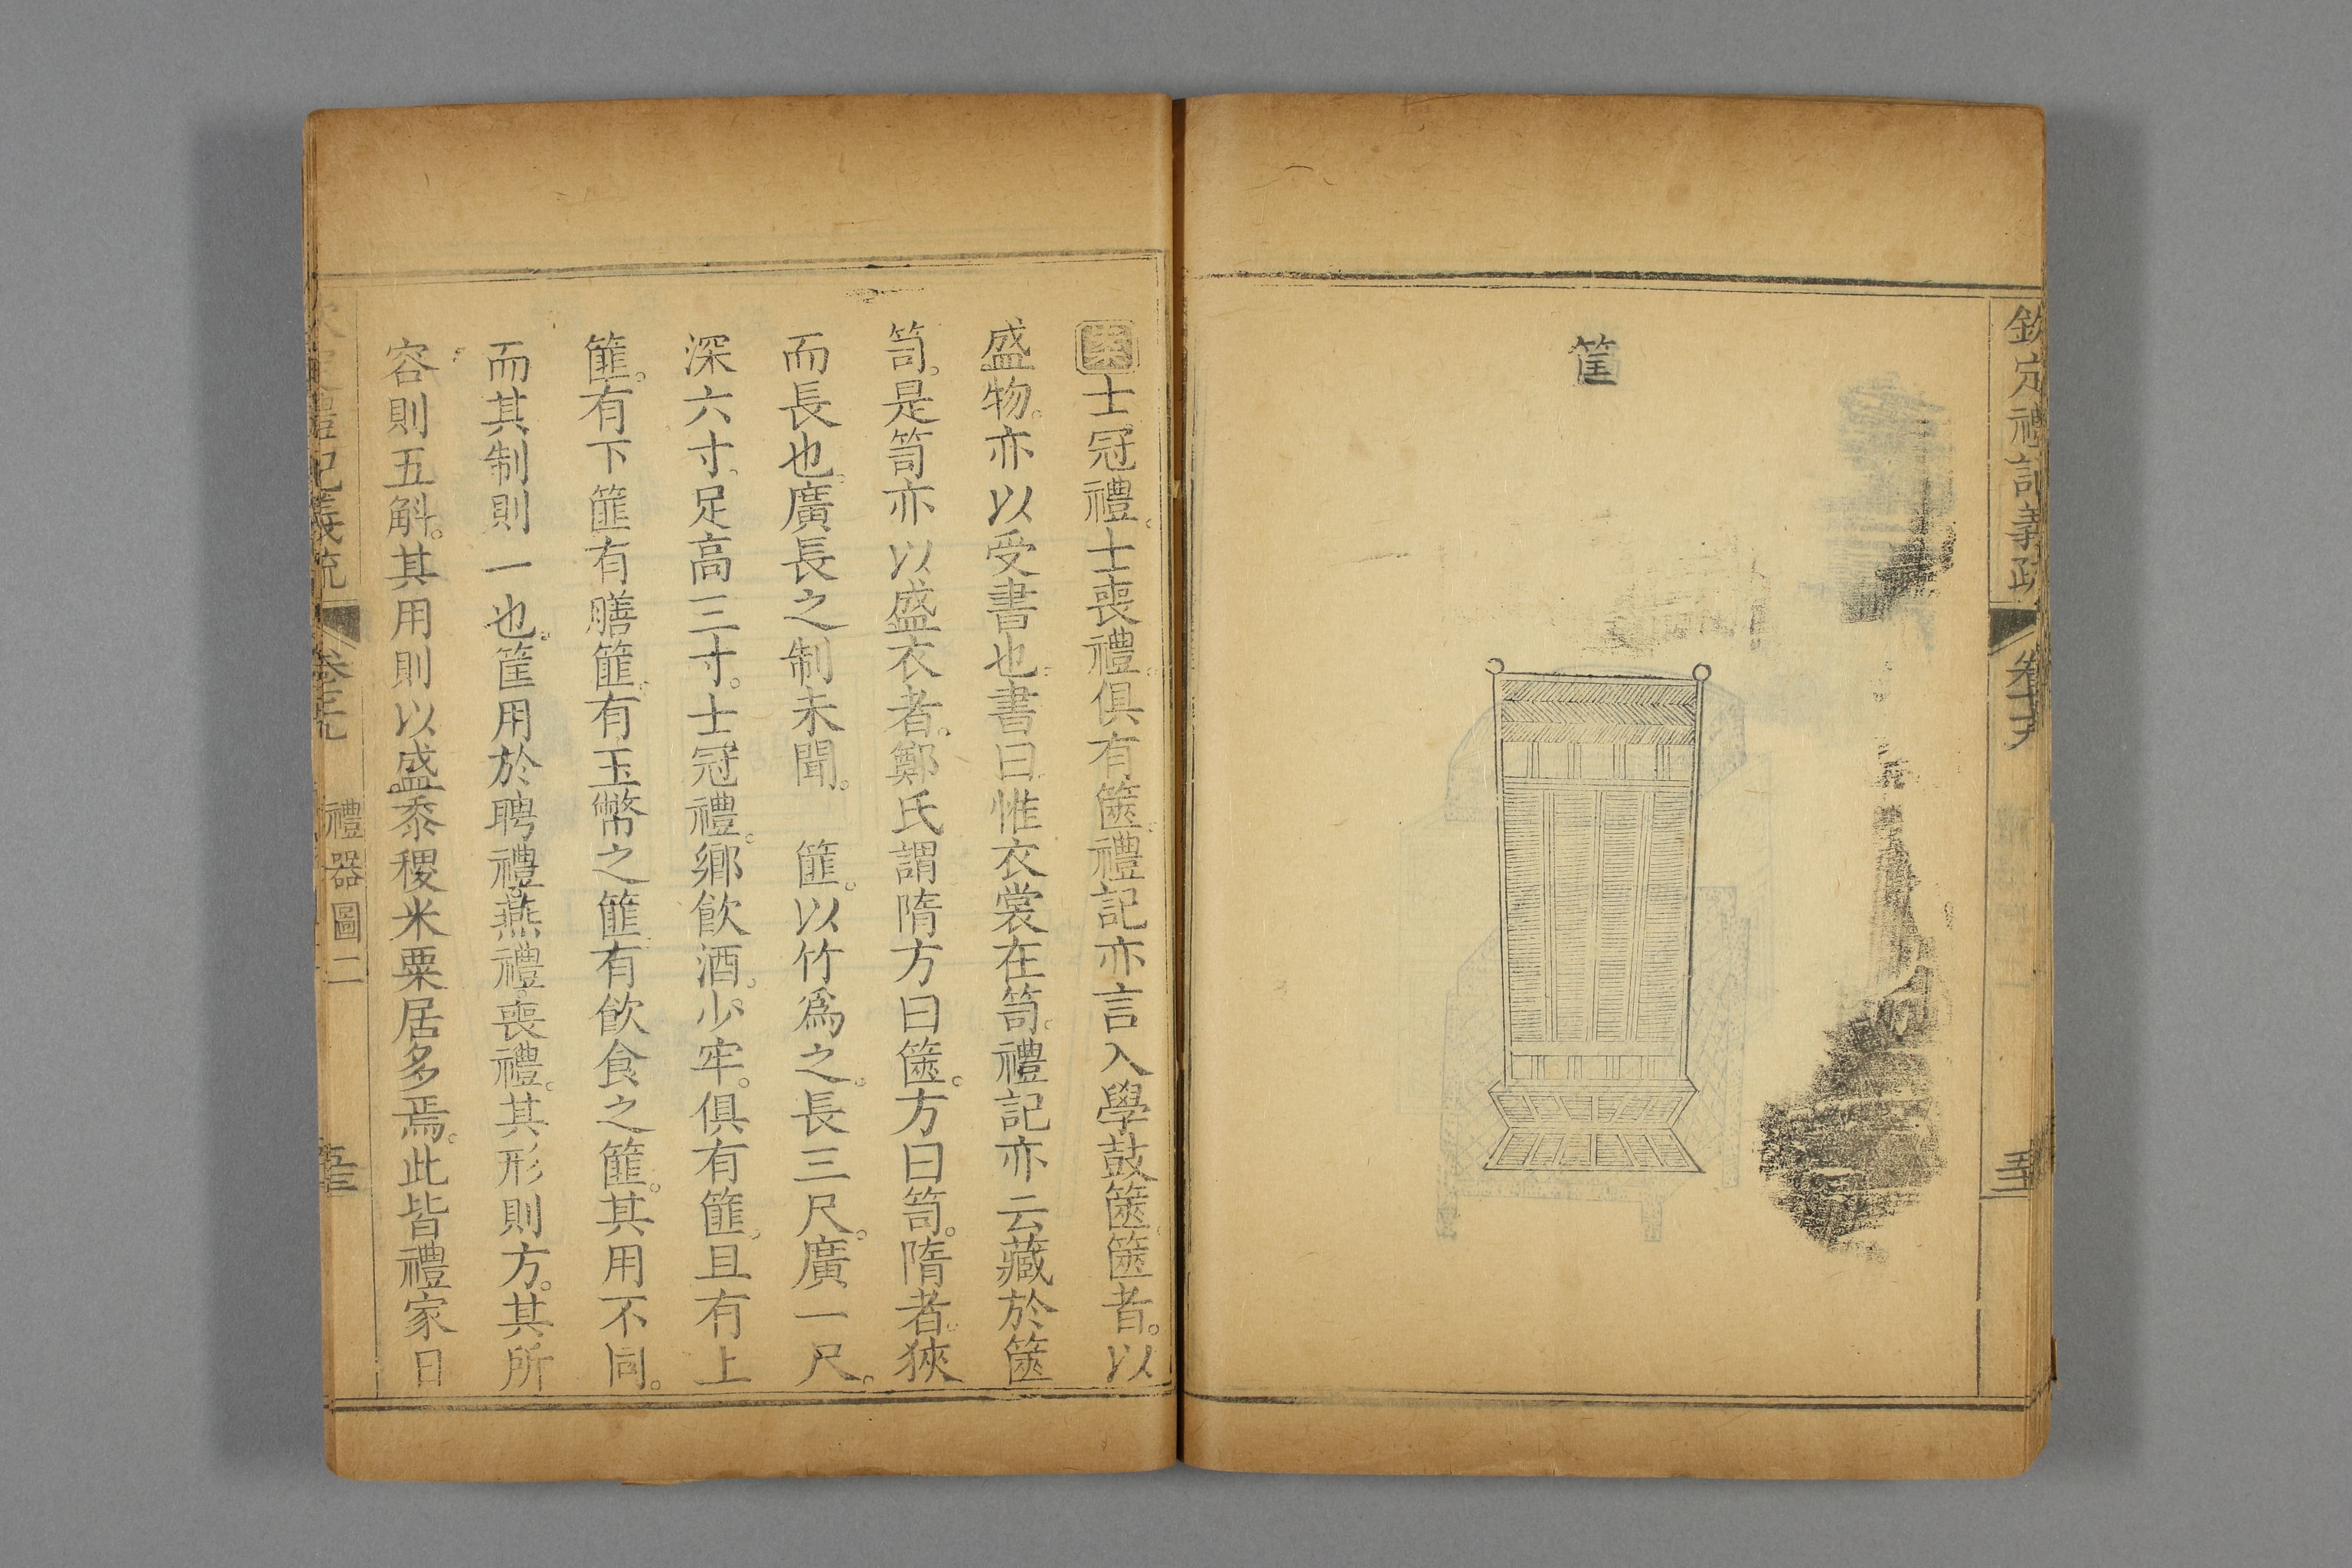 欽定禮記義疏
筐
案士冠禮。士喪禮。俱有篋。禮記亦言入學鼓篋。篋者。以
盛物。亦以受書也。書曰惟衣裳在笥。禮記亦云藏於篋
笥。是笥亦以盛衣者。鄭氏謂隋方曰篋。方曰笥。隋者。狹
而長也。廣長之制未聞。 篚。以竹爲之。長三尺。廣一尺。
深六寸。足高三寸。士冠禮。鄉飲酒。少牢。俱有篚。且有上
篚。有下篚。有膳篚。有玉幣之篚。有飲食之篚。其用不同。
而其制則一也。筐用於聘禮。燕禮。喪禮。其形則方。其所
容則五斛。其用則以盛黍稷米粟居多焉。此皆禮家日
禮記義疏
禮器圖二